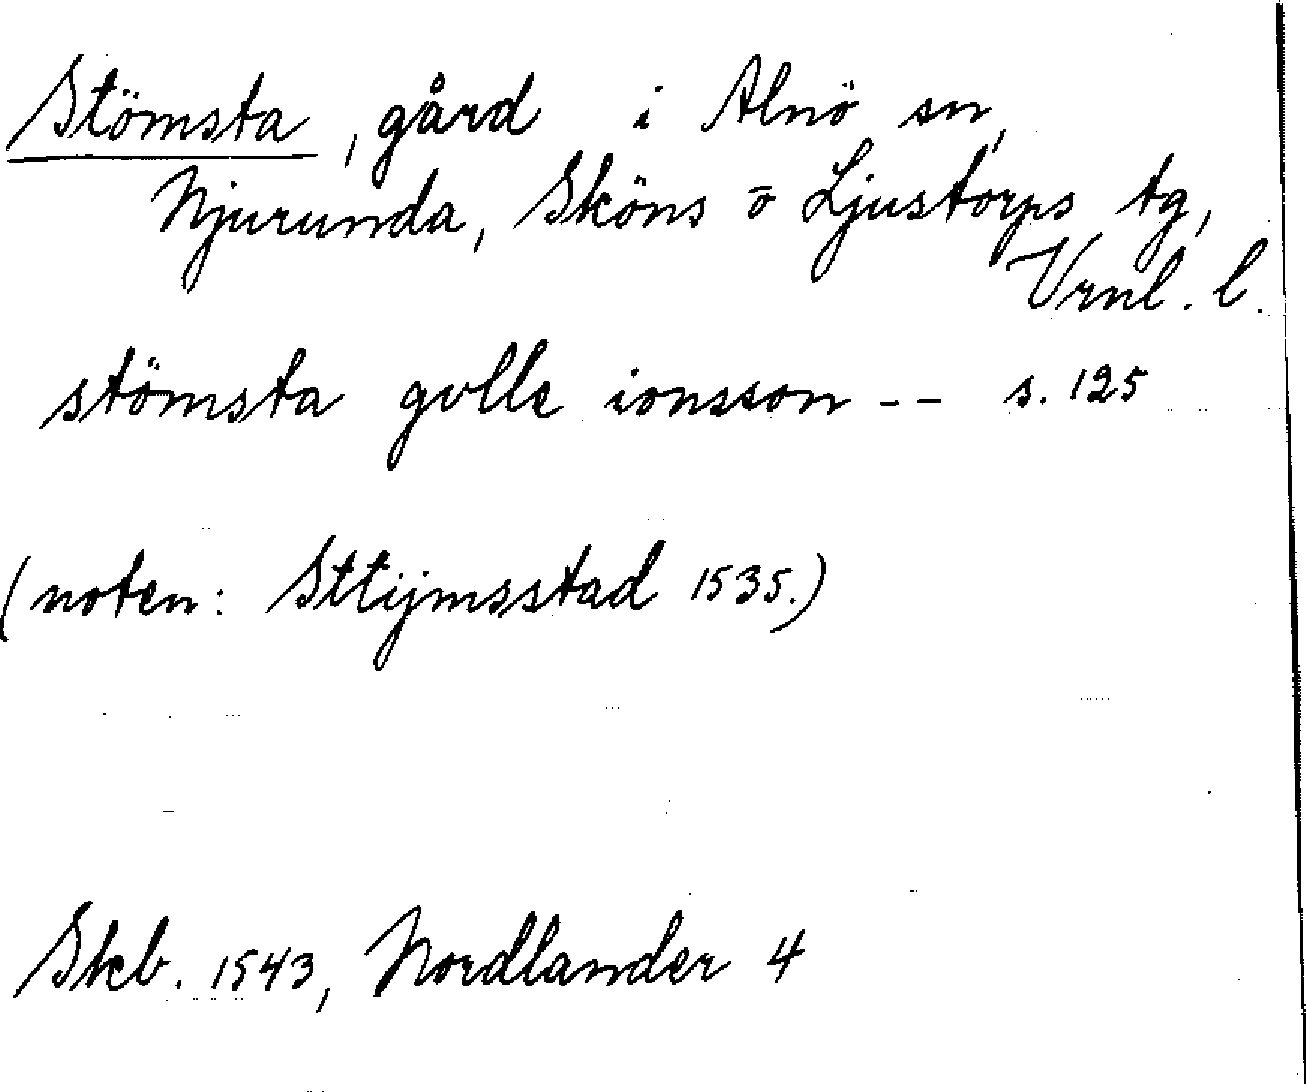 Stömsta, gård i Alnö sn,
Njurunda, Sköns o Ljustorps tg,
Vrnl. l.
stömsta gulle ionsson -- s. 125
(noten: Sttijmsstad 1535.)
Skb. 1543, Nordlander 4